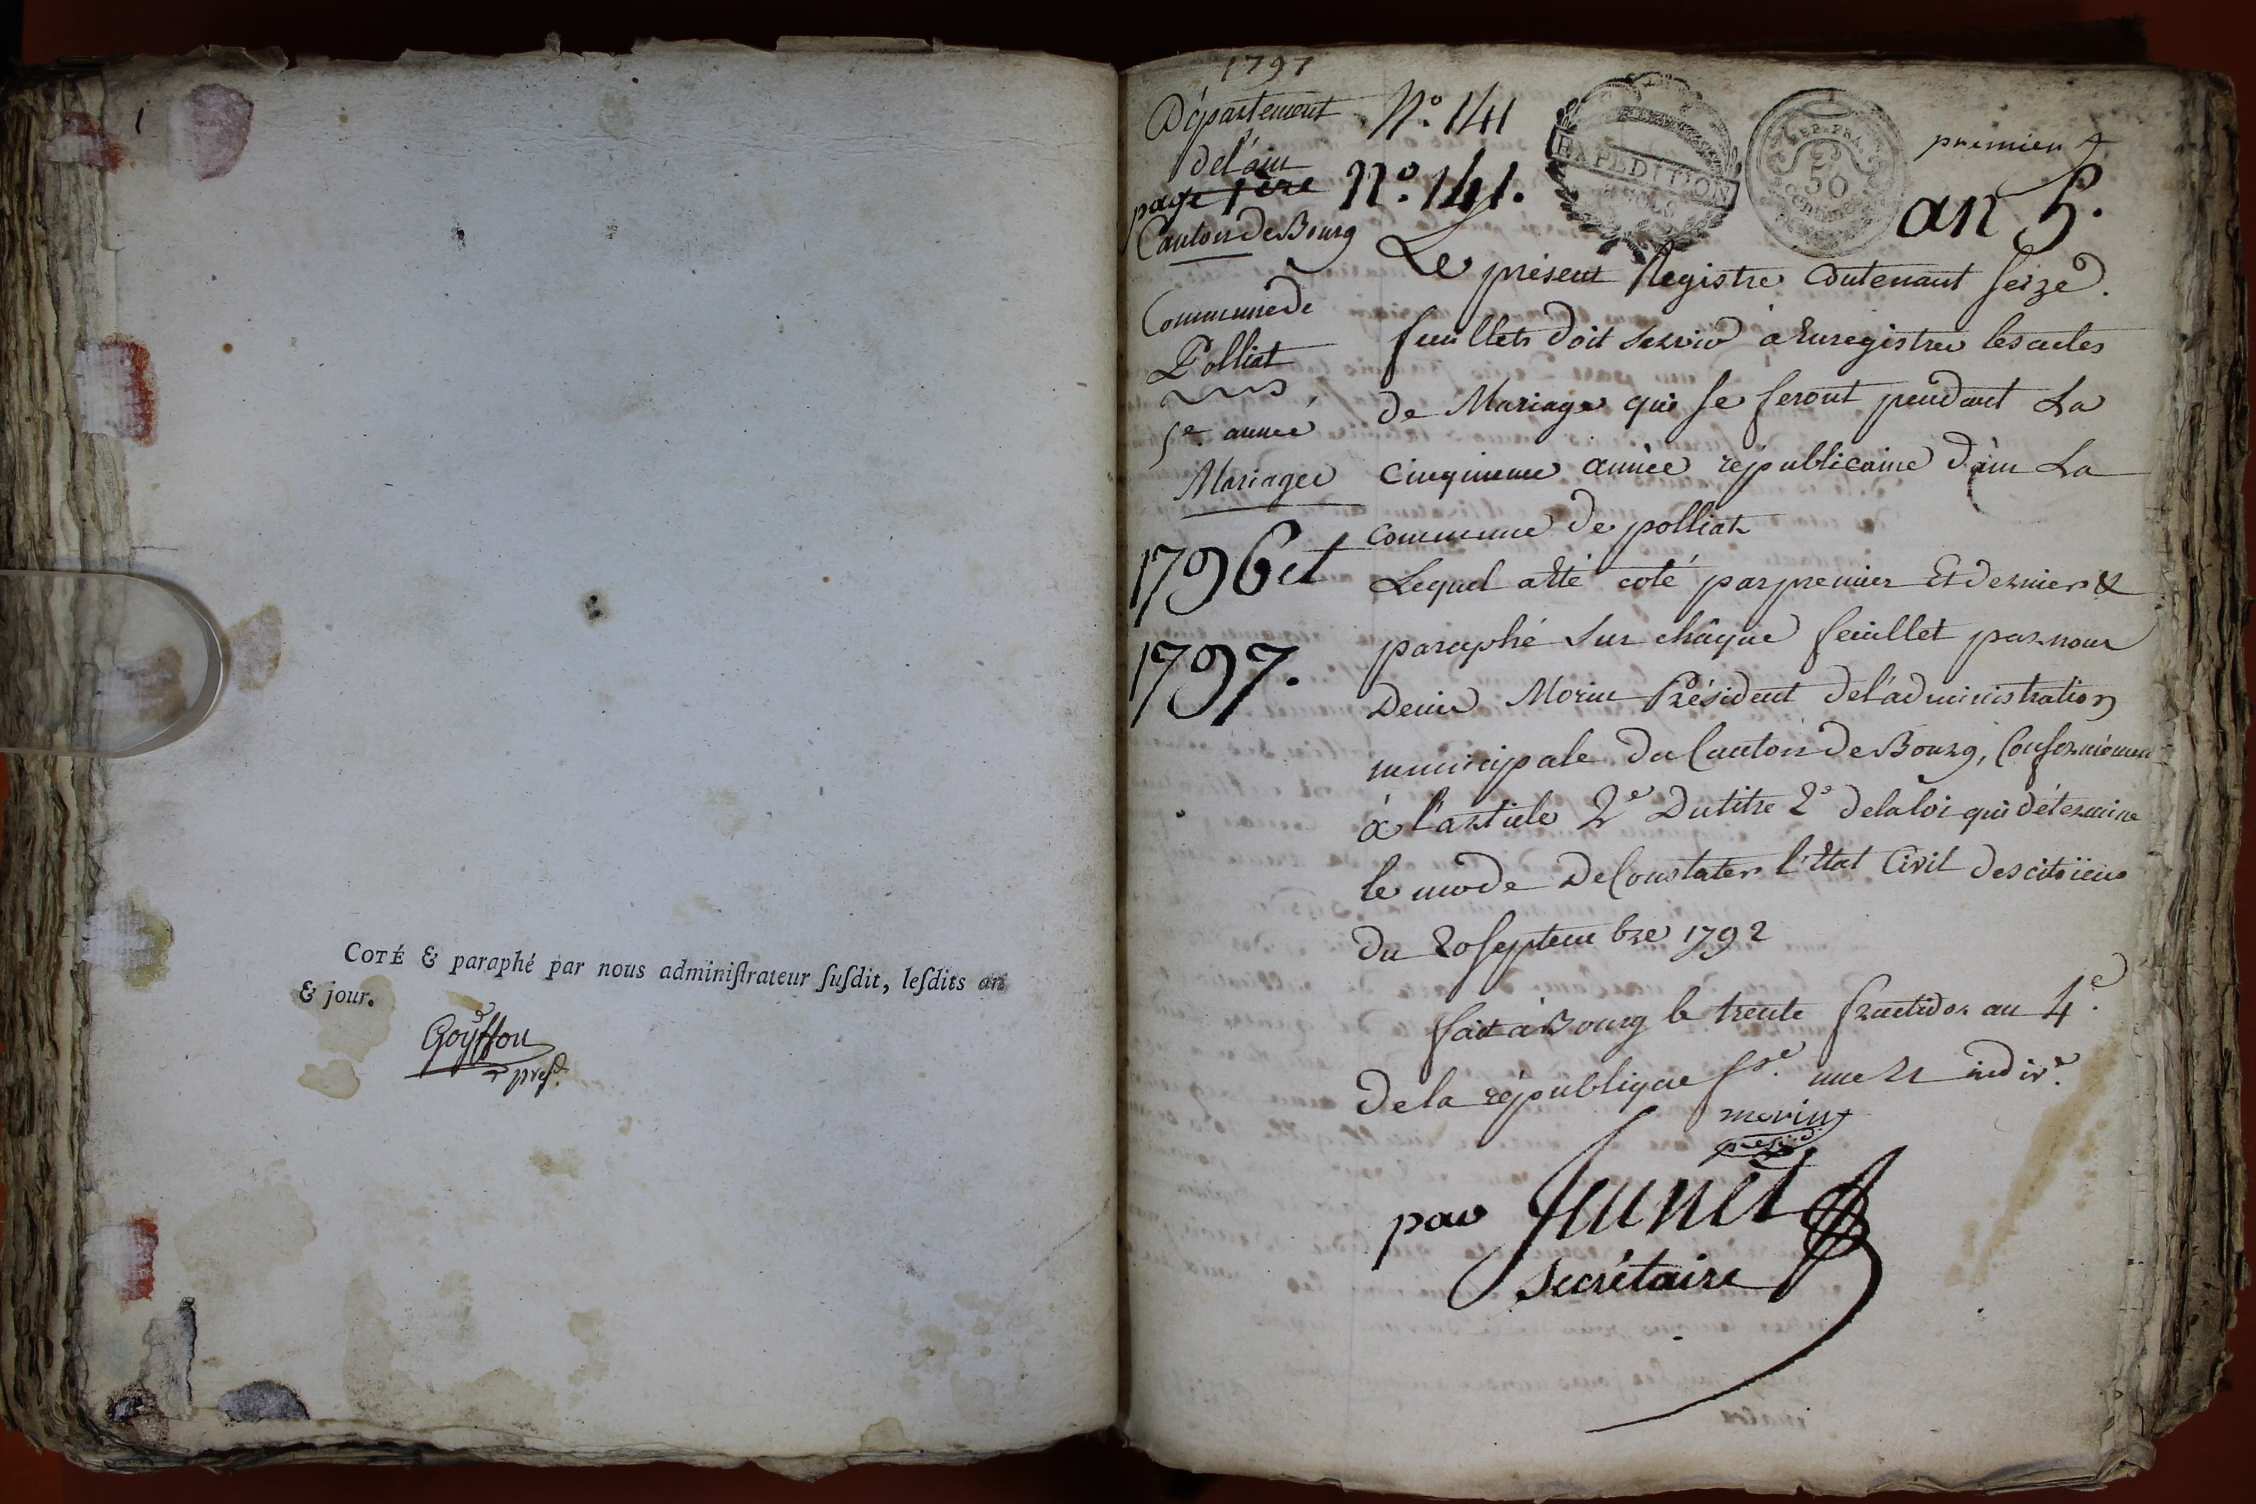 1
COTÉ & paraphé par nous adminiſtrateur ſuſdit, leſdits an
& jour.
Goyffon
presd.
1797
Département
de l'ain
page 1ere
Canton de Bourg
Commune de
Polliat
5e année
Mariages
1796 et
1797.
N.o 141
N.o 141.
EXPÉDITION
REP. FRA.
50
Centimes
premier
an 5.
Le présent Registre Contenant seize
feuillets doit servir à Enregistrer les actes
de Mariage qui se feront pendant La
Cinqieme année républicaine dain La
Commune de polliat
Lequel a Eté coté par premier Et dernier &
paraphé sur châque feuillet par nous
Denis Morin Président de l'administration
municipale du Canton de Bourg, Conformémen
à l'article 2e du titre 2e de la loi qui détermine
le mode de Constater l'Etat Civil des citoïens
du 20 septembre 1792
fait à Bourg le trente fructidor an 4e.
de la république fse. une et indive.
morin
presid.
par Jeunet
Secrétaire